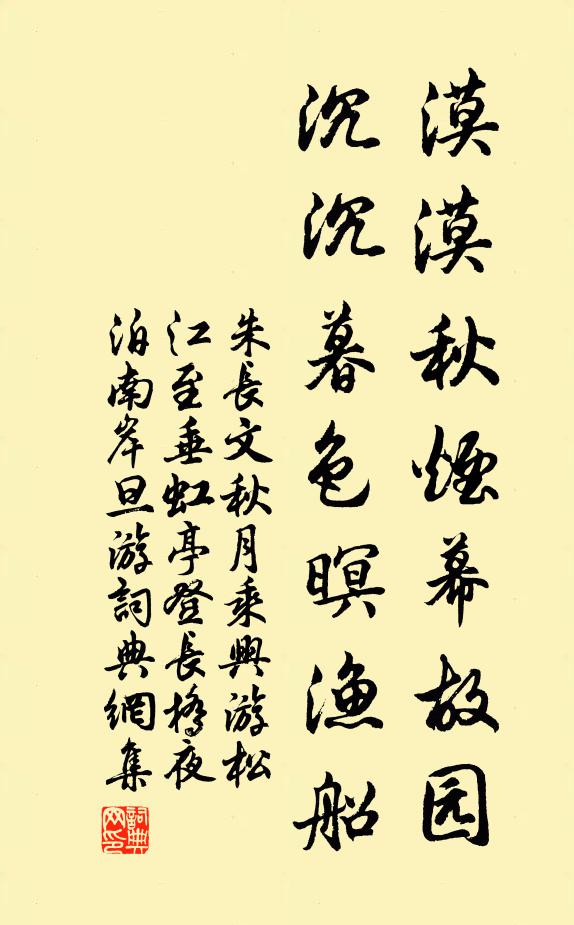 漠漠秋煙幕故园
沉沉暮色暝渔船
朱長文秋月乘興游松
江至垂虹亭登長橋夜
泊南岸旦游詞典網集
詞典网印